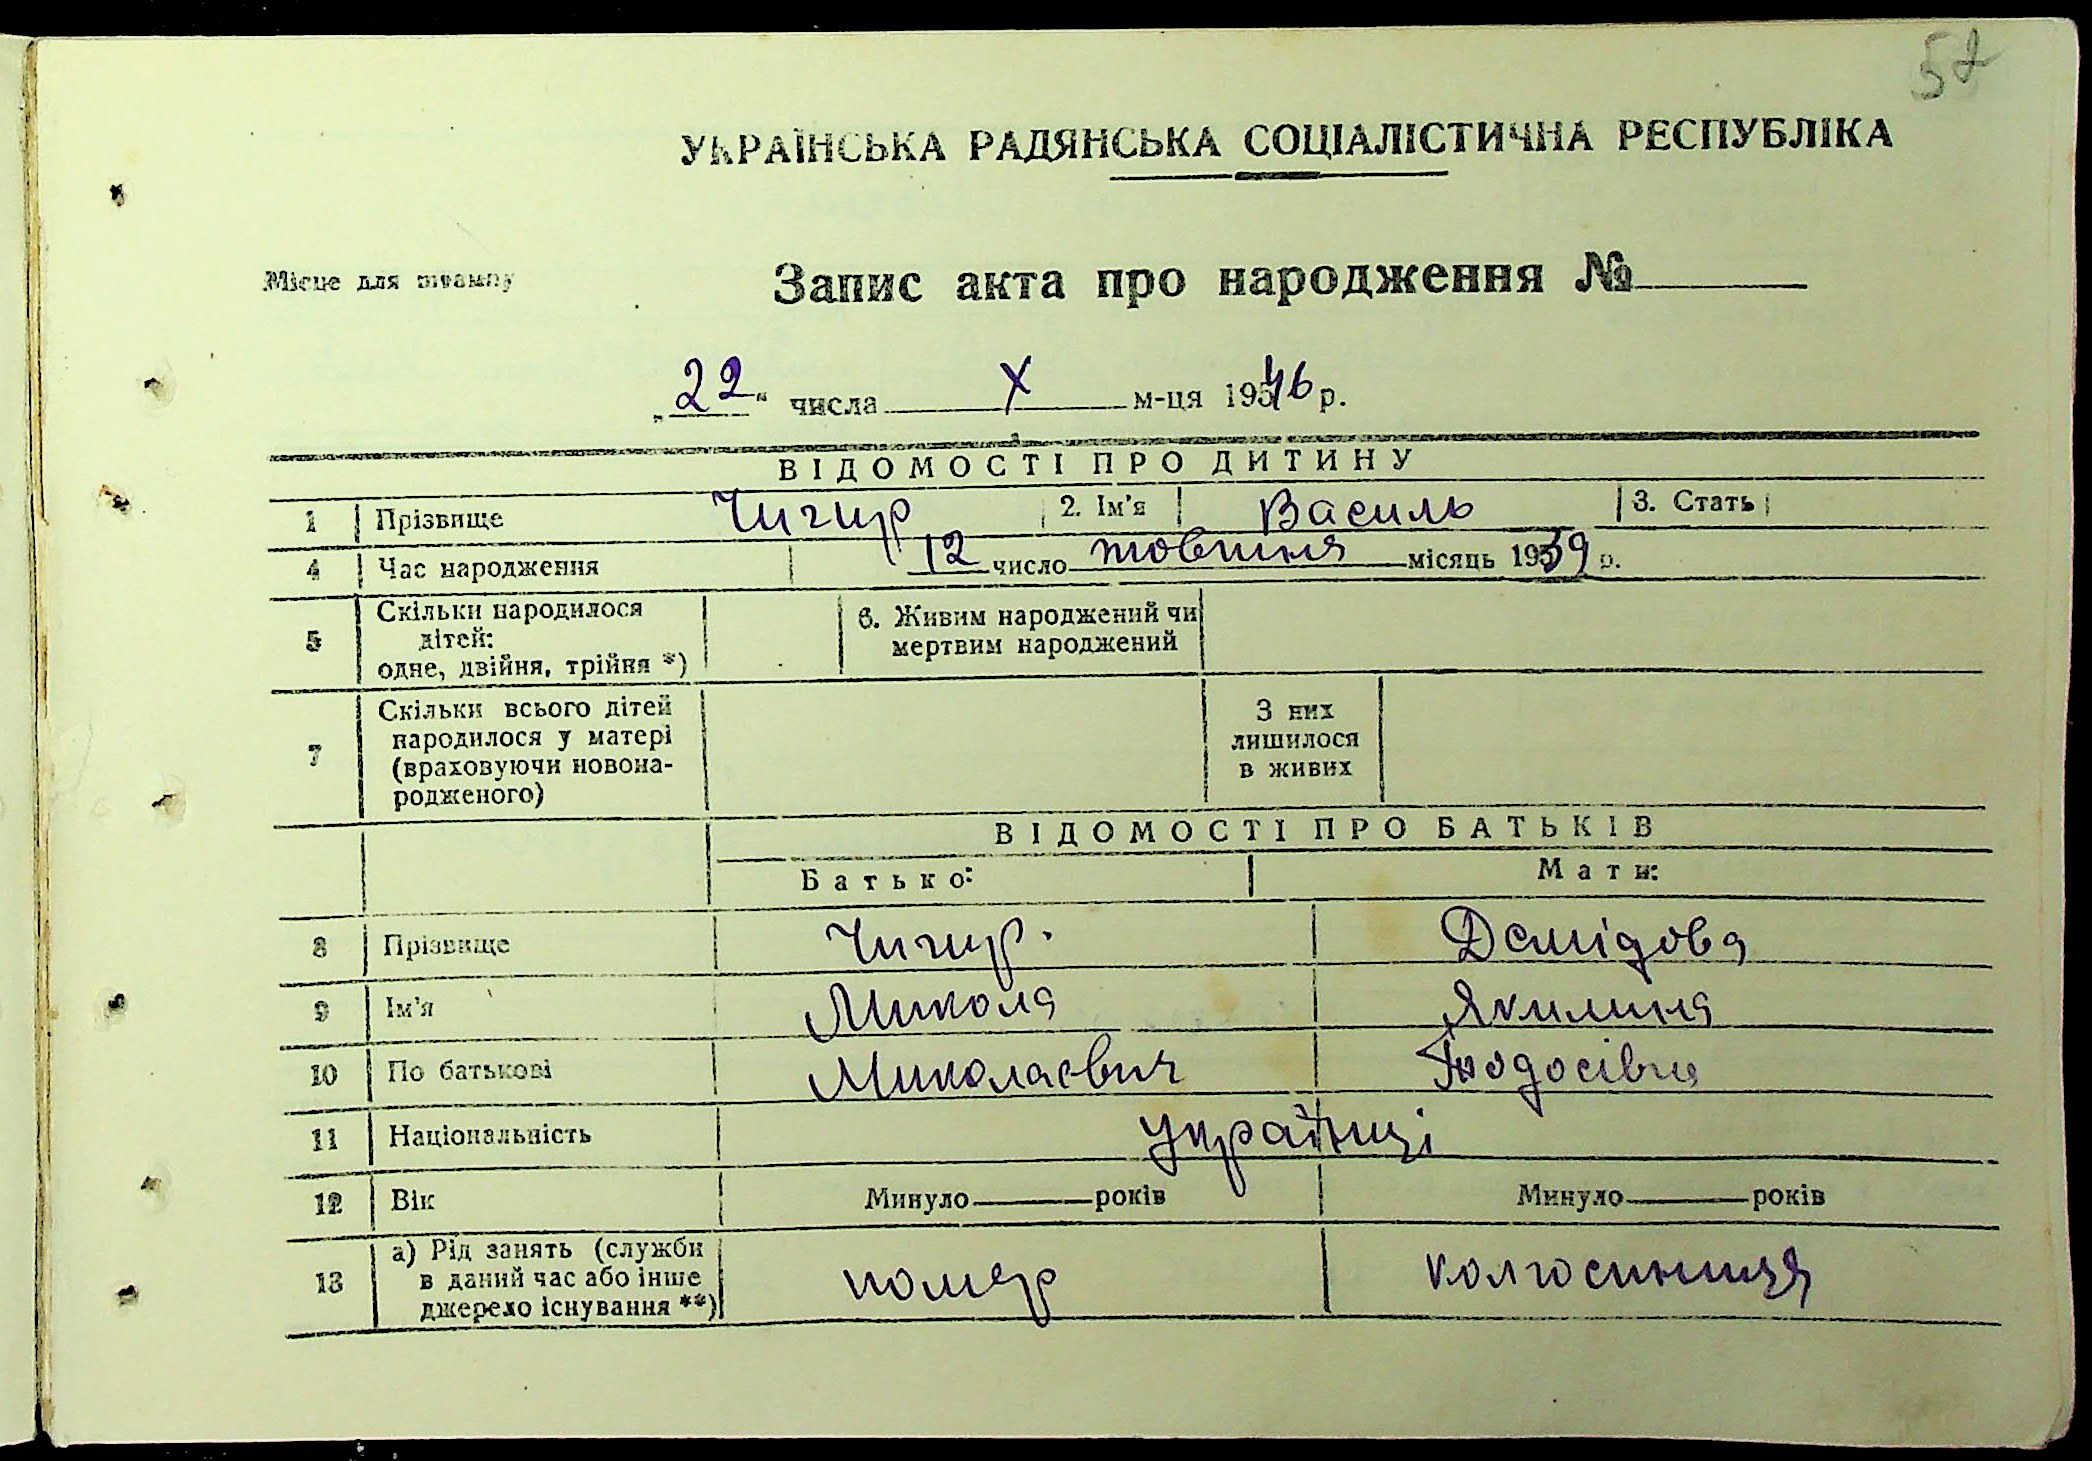 52
УКРАЇНСЬКА РАДЯНСЬКА СОЦІАЛІСТИЧНА РЕСПУБЛІКА
Місце для штампу
Запис акта про народження №
„22“ числа X м-ця 1946 р.
ВІДОМОСТІ ПРО ДИТИНУ
1 Прізвище Чигир 2. Ім'я Василь 3. Стать
4 Час народження 12 число жовтня місяць 1939 р.
5 Скільки народилося дітей: одне, двійня, трійня *) 6. Живим народжений чи мертвим народжений
7 Скільки всього дітей народилося у матері (враховуючи новонародженого) З них лишилося в живих
ВІДОМОСТІ ПРО БАТЬКІВ
Батько: Мати:
8 Прізвище Чигир. Демідова
9 Ім'я Микола Якилина
10 По батькові Миколаєвич Тодосівна
11 Національність українці
12 Вік Минуло років Минуло років
13 а) Рід занять (служби в даний час або інше джерело існування **) помер колгоспниця